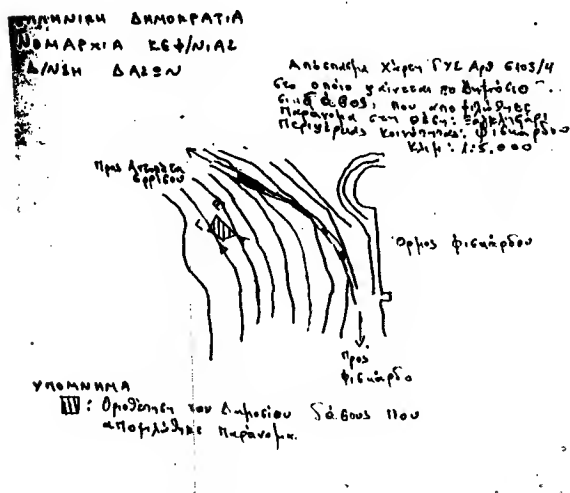 ΕΛΛΗΝΙΚΗ ΔΗΜΟΚΡΑΤΙΑ
ΝΟΜΑΡΧΙΑ ΚΕΦ/ΝΙΑΣ
Δ/ΝΣΗ ΔΑΣΩΝ
Απόσπασμα Χάρτη ΓΥΣ Αρθ 6103/4
στο οποίο φαίνεται το Δημόσιο
δάσος, που αποψιλώθηκε
Παράνομα στη θέση:
Περιφέρειας Κοινότητας: Φισκάρδου
Κλιμ: 1:5.000
Προς
Ερρίσου
Όρμος Φισκάρδου
Προς
Φισκάρδο
ΥΠΟΜΝΗΜΑ
: Οριοθέτηση του Δημοσίου δάσους που
αποψιλώθηκε παράνομα.